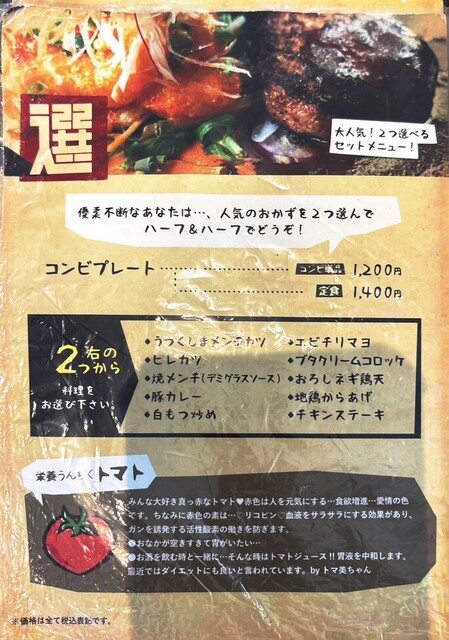 選
大人気！2つ選べる
セットメニュー！
優柔不断なあなたは…、人気のおかずを2つ選んで
ハーフ＆ハーフでどうぞ！
コンビプレート コンビ単品 1,200円
定食 1,400円
右の
2つから
料理を
お選び下さい
◆うつくしまメンチカツ
◆ヒレカツ
◆焼メンチ(デミグラスソース)
◆豚カレー
◆白もつ炒め
◆エビチリマヨ
◆ブタクリームコロッケ
◆おろしネギ鶏天
◆地鶏からあげ
◆チキンステーキ
栄養うんちく トマト
みんな大好き真っ赤なトマト♥赤色は人を元気にする…食欲増進…愛情の色
です。ちなみに赤色の素は…♡リコピン♡血液をサラサラにする効果があり、
ガンを誘発する活性酸素の働きを防ぎます。
●おなかが空きすぎて胃がいたい…
●お酒を飲む時と一緒に…そんな時はトマトジュース!!胃液を中和します。
最近ではダイエットにも良いと言われています。by トマ美ちゃん
※価格は全て税込表記です。